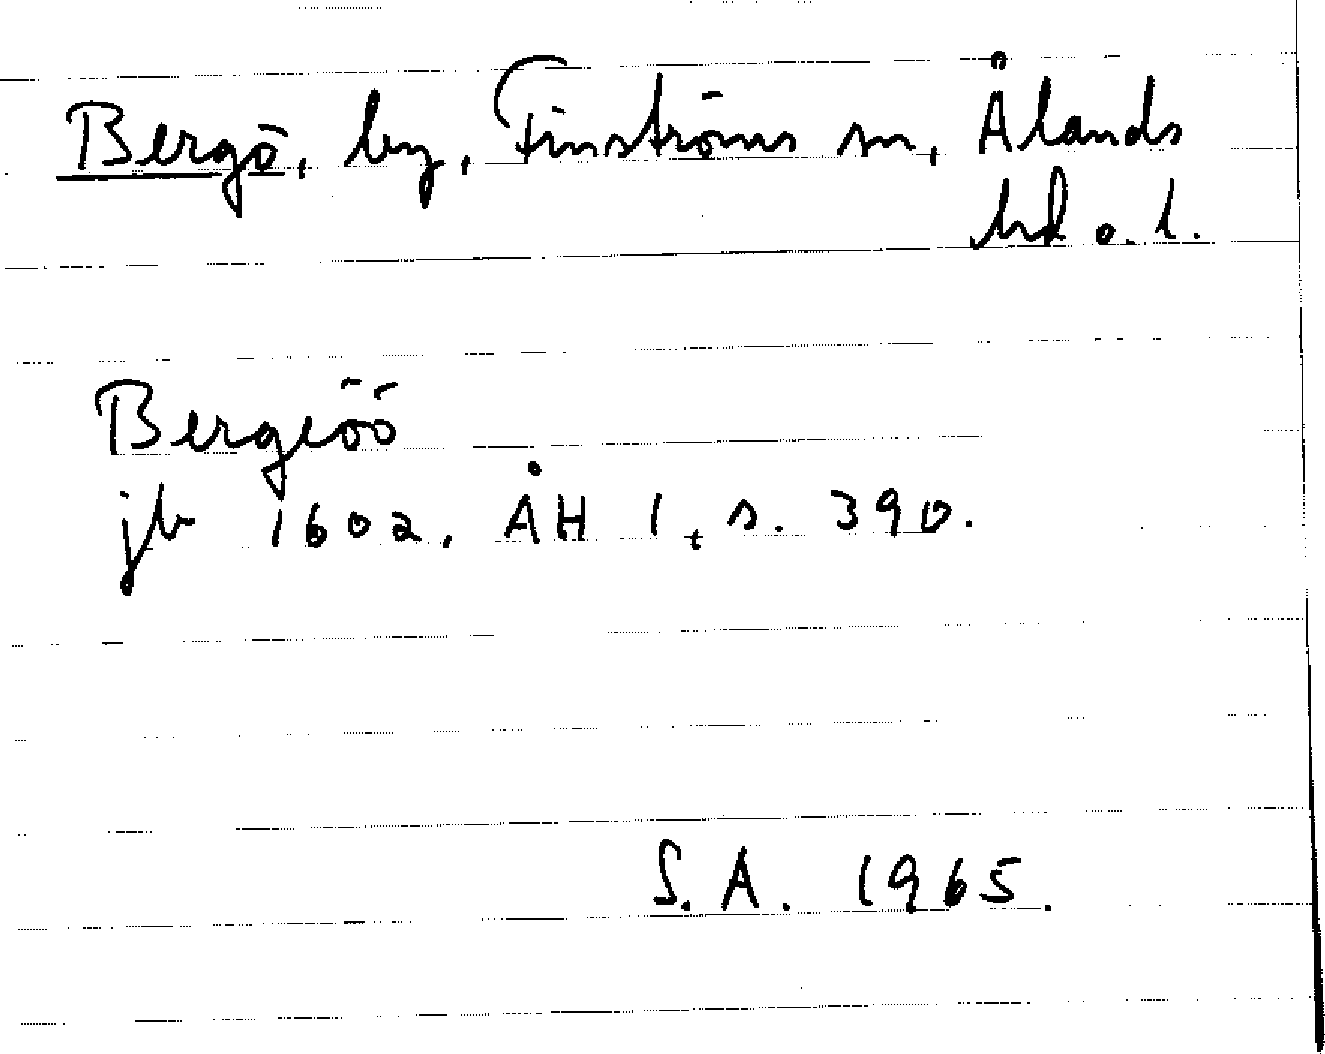 Bergö, by, Finströms sn, Ålands
hd o. l.
Bergeöö
jb 1602. ÅH 1, s. 390.
S.A. 1965.